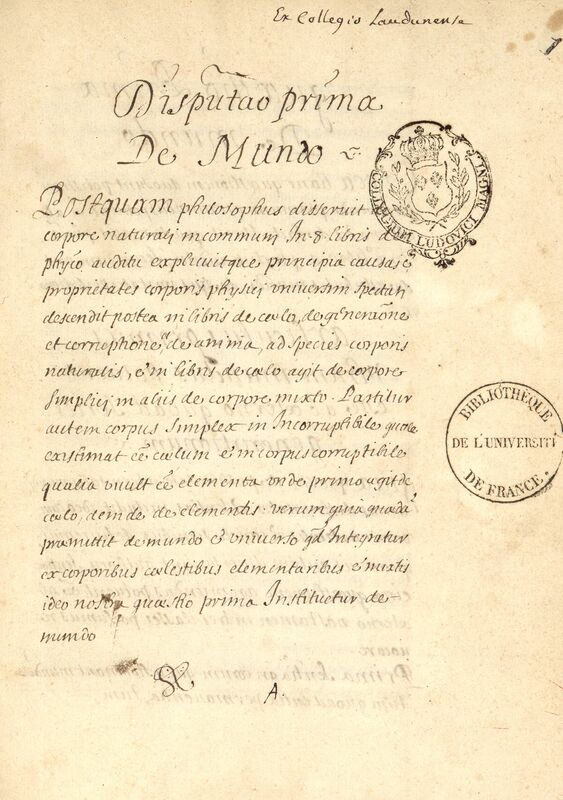 Ex Collegio Laudunense
1
Disputao prima
De Mundo
Postquam philosophus disseruit de
corpore naturali in communi In 8 libris de
physco auditu explicuitque principia causas e
proprietates corporis physici universim spectati
descendit postea in libris de cœlo, de generaone
et corruptione, de anima, ad species corporis
naturalis, e in libris de cœlo agit de corpore
simplici, in aliis de corpore mixto. Partitur
autem corpus simplex in Incorruptibile quale
existimat ee cœlum e in corpus corruptibile
qualia vult ee elementa unde primo agit de
cœlo, deinde de elementis. verum quia quædã
præmittit de mundo e universo qd Integratur
ex corporibus cœlestibus elementaribus e mixtis
ideo nostra quæstio prima Instituetur de
mundo
A.
COLLEGII LUDOVICI MAGNI
BIBLIOTHEQUE
DE L'UNIVERSITÉ
DE FRANCE.